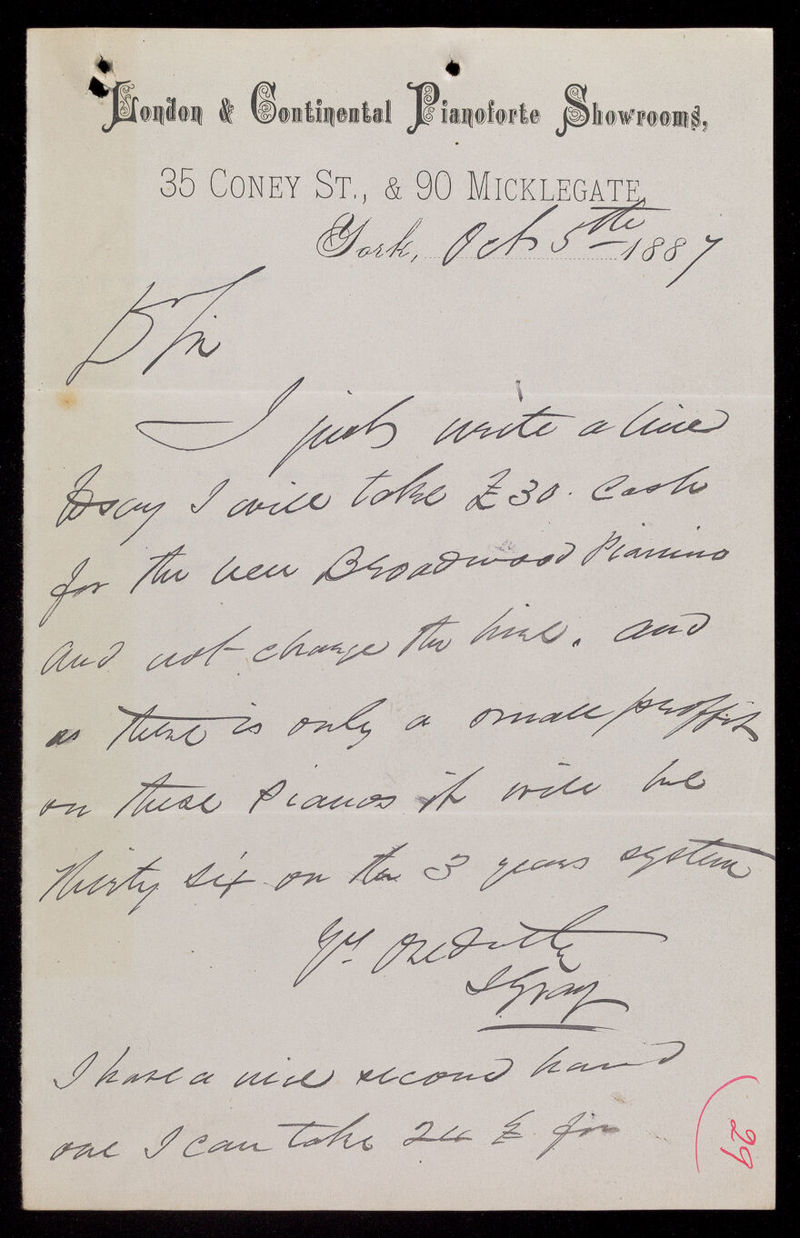 London & Continental Pianoforte Showrooms,
35 Coney St., & 90 Micklegate,
York, Oct 5th 1887
Dr Sir
I just write a line
to say I will take £30. cash
for the new Broadwood Pianino
and not charge the hire. and
as there is only a small proffit
on these Pianos it will be
thirty six on the 3 years system
Yrs Obedntly
J Gray
I have a nice second hand
one I can take 24 £ for
29